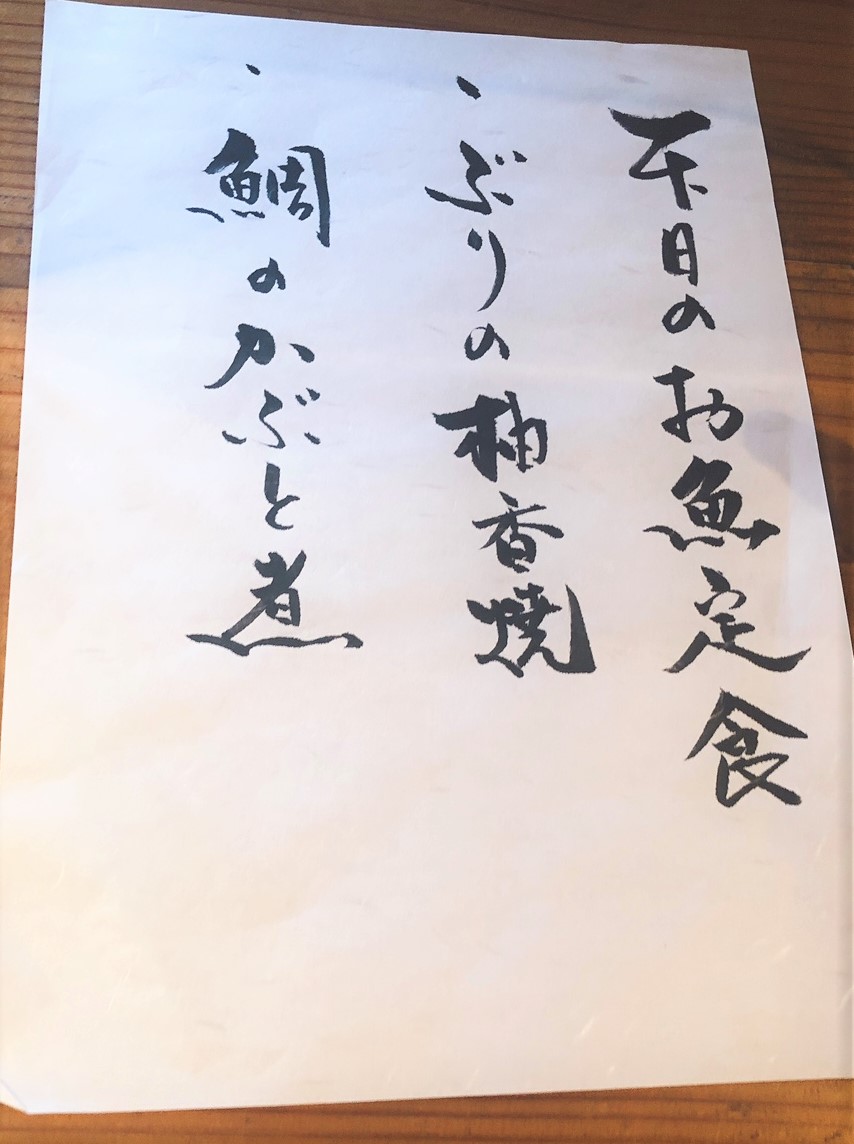 本日のお魚定食
・ぶりの柚香焼
・鯛のかぶと煮